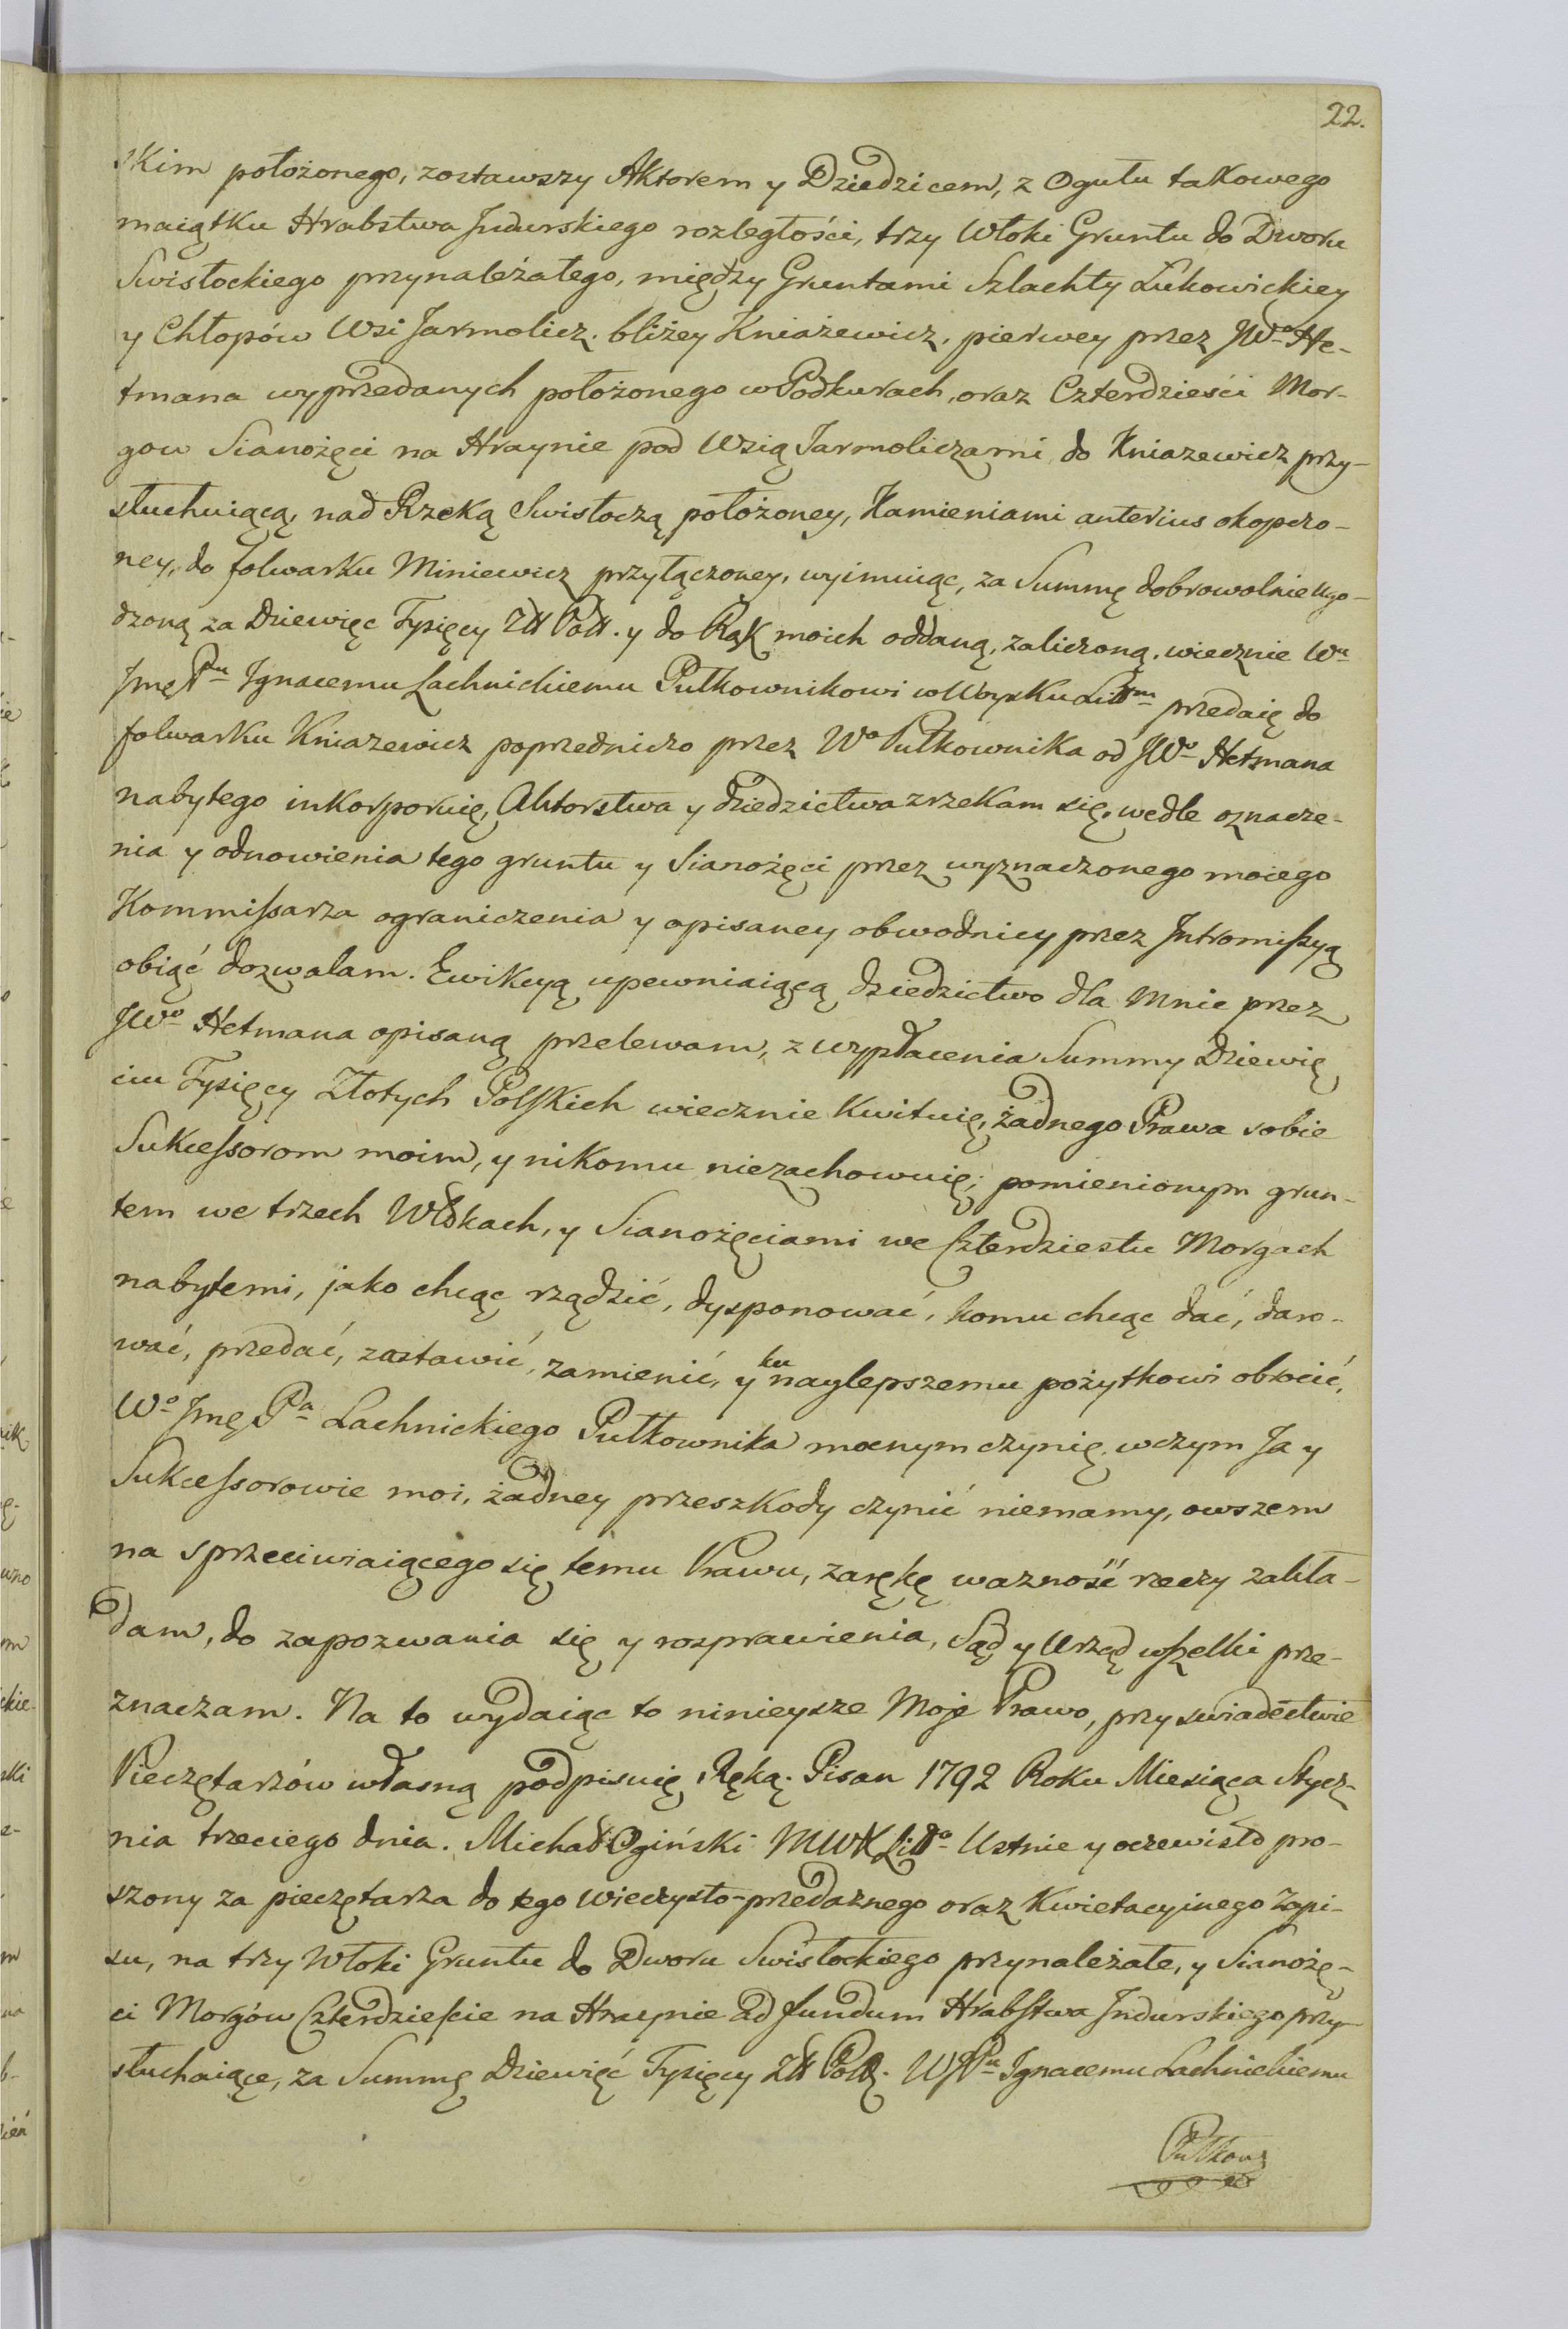 22.
skim położonego, zostawszy Aktorem y Dziedzicem, z Ogułu takowego
maiątku Hrabstwa Indurskiego rozległości, trzy Włoki Gruntu do Dworu
Swisłockiego przynależałego, między Gruntami Szlachty Łukowickiey
y Chłopów Wsi Jarmolicz. bliżey Kniażewicz, pierwey przez JWo He-
tmana wyprzedanych położonego w Podkurach, oraz Czterdzieści Mor-
gow Sianożęci na Hraynie pod Wsią Jarmoliczami do Kniazewicz przy-
słuchuiącą, nad Rzeką Swisłoczą położoney, Kamieniami anterius okopczo-
ney, do folwarku Miniewicz przyłączoney, wyimuiąc, za Summę dobrowolnie ugo-
dzoną za Dziewięc Tysięcy Złł Poll. y do Rąk moich oddaną, zaliczoną, wiecznie Wu
Jmę Pu Ignacemu Lachnickiemu Pułkownikowi w Woysku Littm przedaię do
folwarku Kniazewicz poprzedniczo przez Wo Pułkownika od JWo Hetmana
nabytego inkorporuię, Aktorstwa y dziedzictwa zrzekam się, wedle oznacze-
nia y odnowienia tego gruntu y Sianożęci przez wyznaczonego moiego
Kommissarza ograniczenia y opisaney obwodnicy przez Intromissyą
obiąć dozwalam. Ewikcyą upewniaiącą dziedzictwo dla Mnie przez
JWo Hetmana opisaną przelewam, z wypłacenia Summy Dziewię
ciu Tysięcy Złotych Polskich wiecznie Kwituię, żadnego Prawa sobie
Sukcessorom moim, y nikomu niezachowuię; pomienionym grun-
tem we trzech Włokach, y Sianożęciami we Czterdziestu Morgach
nabytemi, jako chcąc rządzić, dysponować, komu chcąc dać, daro-
wać, przedać, zastawić, zamienić, y ku naylepszemu pożytkowi obrócić,
Wo Jmę Pa Lachnickiego Pułkownika mocnym czynię, w czym Ja y
Sukcessorowie moi, żadney przeszkody czynić niemamy, owszem
na sprzeciwiaiącego się temu Prawu, zarękę wazność rzeczy zakła-
dam, do zapozwania się y rosprawienia, Sąd y Urząd wszelki prze-
znaczam. Na to wydaiąc to ninieysze Moje Prawo, przy swiadectwie
Pieczętarzów własną podpisuię Ręką. Pisan 1792 Roku Miesiąca Stycz-
nia trzeciego dnia. Michał Ogiński MWK Litto Ustnie y oczewisto pro-
szony za pieczętarza do tego wieczysto-przedażnego oraz Kwietacyinego Zapi-
su, na trzy Włoki Gruntu do Dworu Swisłockiego przynależałe, y Sianożę-
ci Morgów Czterdzieście na Hraynie ad fundum Hrabstwa Indurskiego przy-
słuchaiące, za Summę Dziewięć Tysięcy Złł Poll. WJPu Ignacemu Lachnickiemu
Pułkow